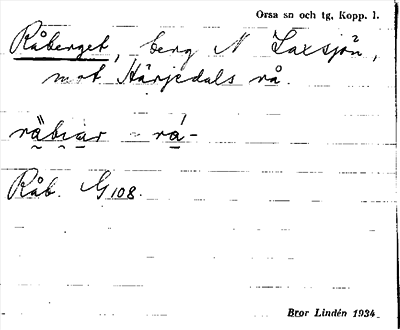 Orsa sn och tg, Kopp. l.
Råberget, berg N Laxsjön,
mot Härjedals rå.
Råb. G 108.
Bror Lindén 1934